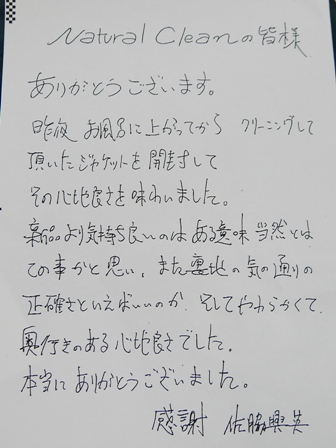 Natural Cleanの皆様
ありがとうございます。
昨夜 お風呂に上がってから クリーニングして
頂いたジャケットを開封して
その心地良さを味わいました。
新品より気持ち良いのは ある意味 当然とは
この事かと思い、また裏地の気の通りの
正確さといえばいいのか、そしてやわらかくて、
奥行きのある心地良さでした。
本当にありがとうございました。
感謝 佐脇